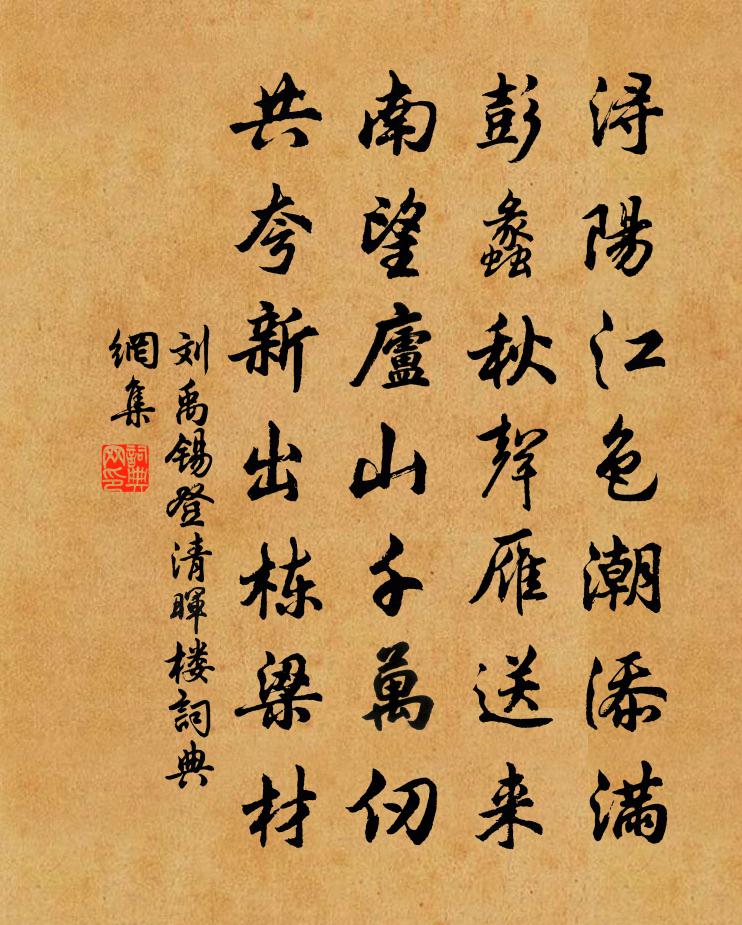 浔陽江色潮添滿
彭蠡秋聲雁送来
南望廬山千萬仞
共夸新出栋梁材
刘禹锡登清暉楼詞典
網集
詞典
网印